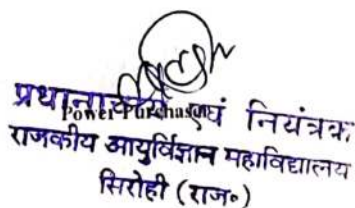 प्रधानाचार्य एवं नियंत्रक
Power Purchaser
राजकीय आयुर्विज्ञान महाविद्यालय
सिरोही (राज०)